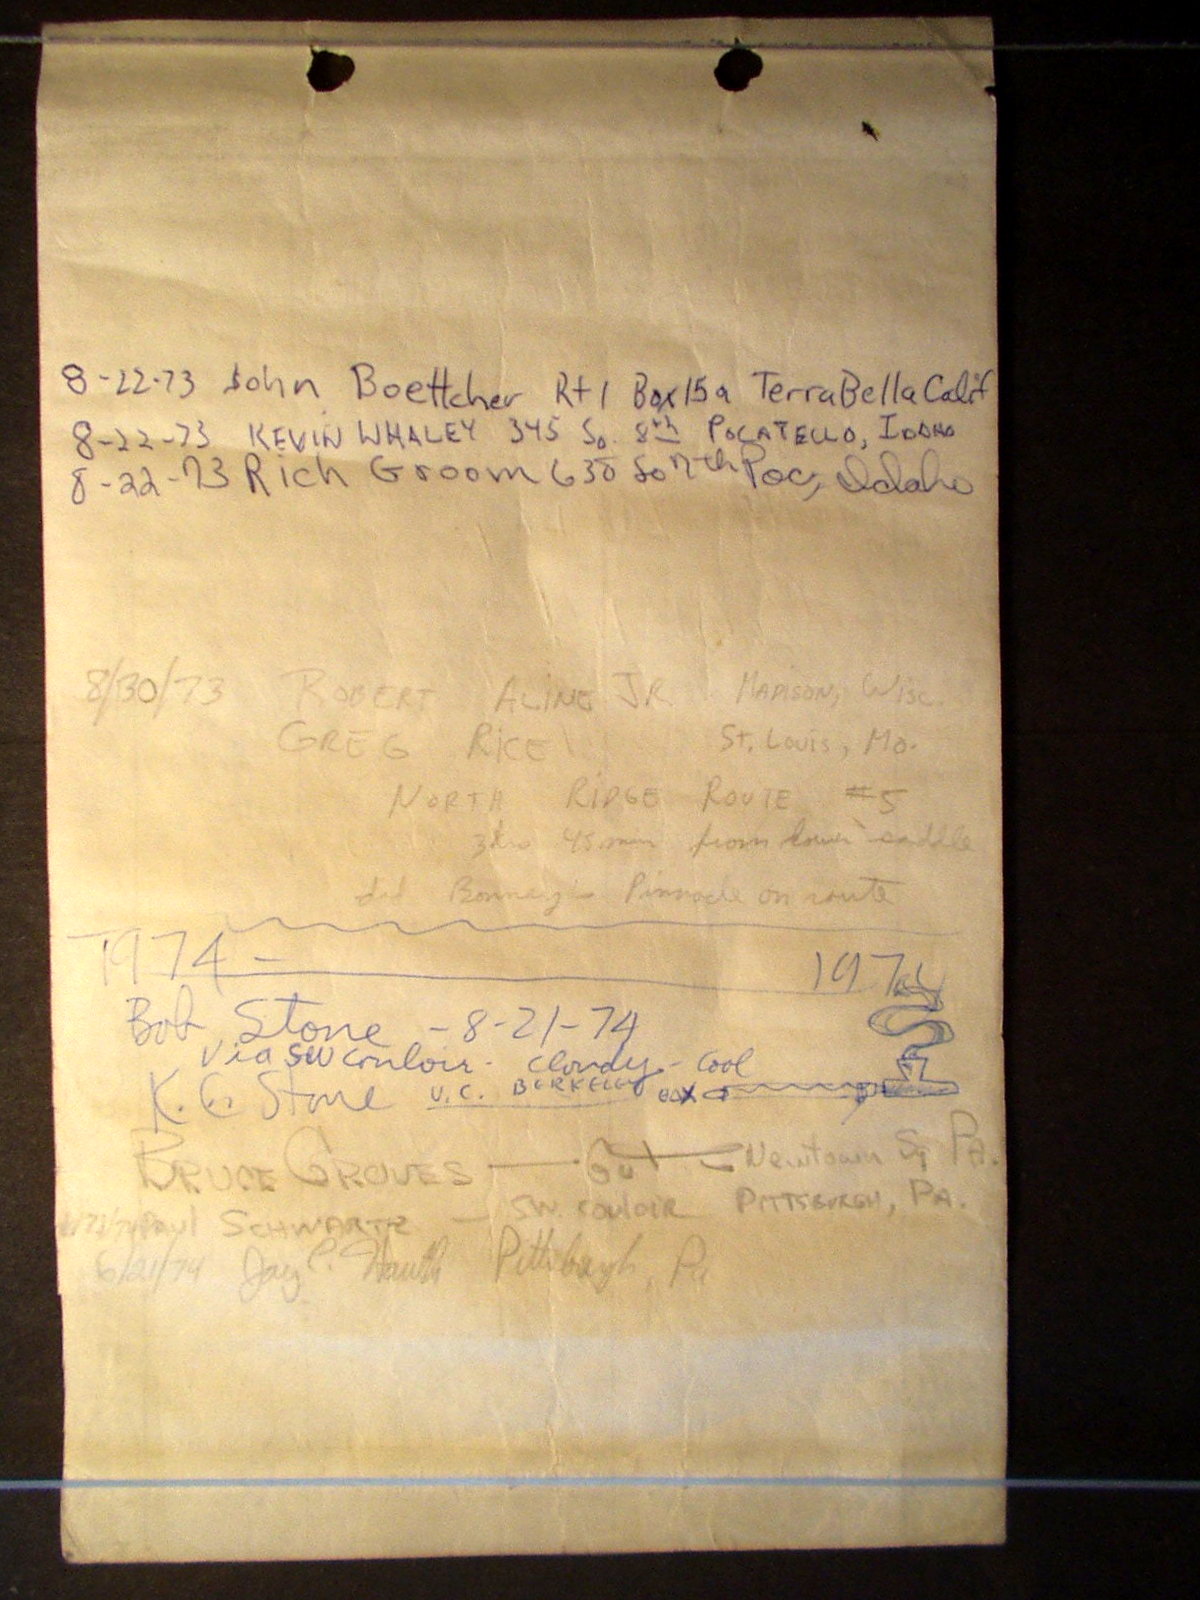 8-22-73 John Boettcher Rt 1 Box 15a Terra Bella Calif
8-22-73 KEVIN WHALEY 345 So. 8th POCATELLO, IDAHO
8-22-73 Rich Groom 630 So 7th Poc, Idaho
8/30/73 ROBERT ALINE JR. MADISON, WISC.
GREG RICE ST. LOUIS, MO.
NORTH RIDGE ROUTE #5
3 hrs 45 min from lower saddle
did Bonney's Pinnacle on route
1974 - 1974
Bob Stone - 8-21-74
via SW couloir - cloudy - cool
K. C. Stone U.C. BERKELEY
BRUCE GROVES Newtown Sq PA.
Paul SCHWARTZ - SW. COULOIR PITTSBURGH, PA.
6/21/74 Jay Pittsburgh, Pa